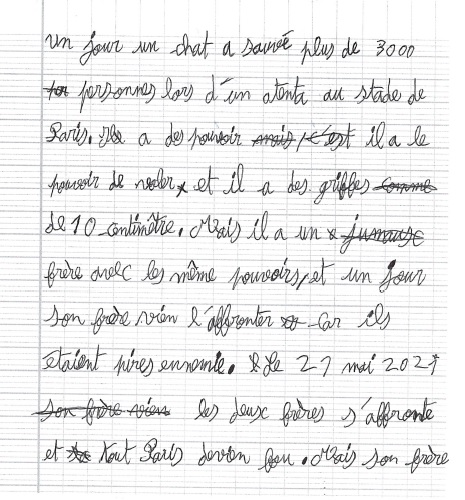 un jour un chat a sauveé plus de 3000
personnes lors d'un atenta au stade de
Paris. Il a des pouvoir mais, c'est il a le
pouvoir de voler, et il a des griffes comme
de 10 centimètre. Mais il a un jumause
frère avec les même pouvoirs, et un jour
son frère vien l'affronter car ils
étaient pires ennemie. Le 21 mai 2021
son frère vien les deux frères s'affronte
et tout Paris devien fou. Mais son frère